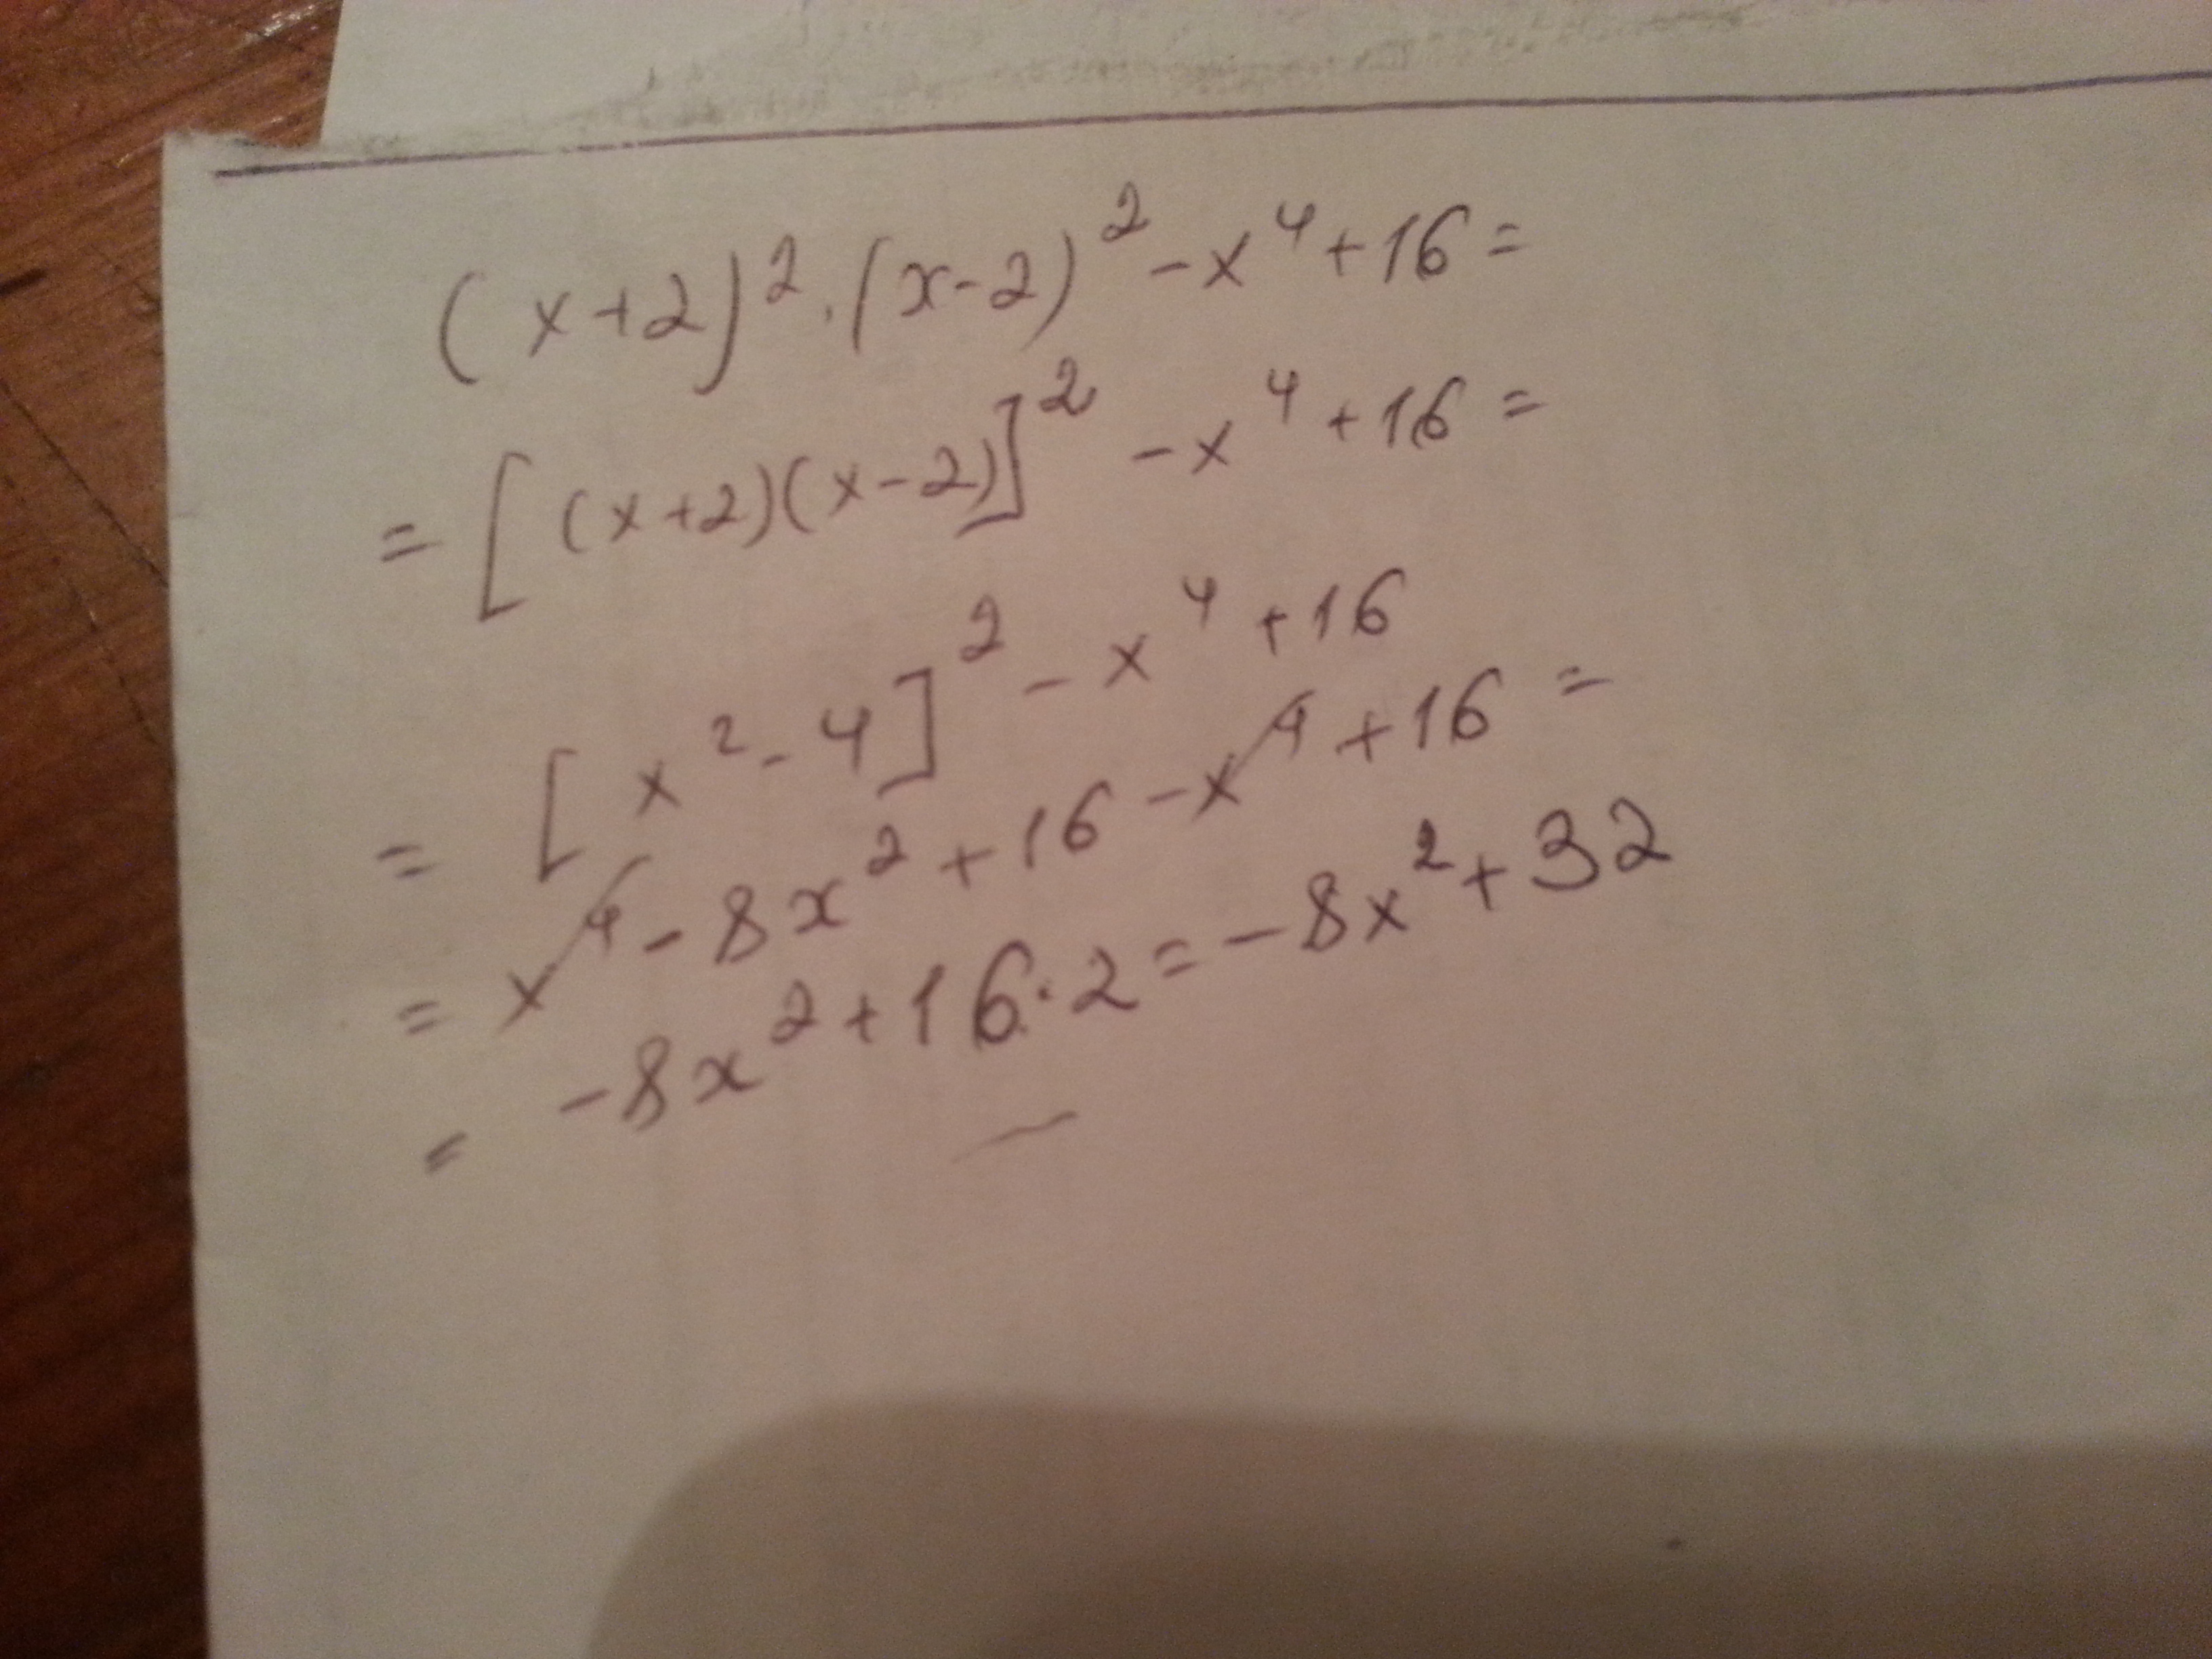 (x+2)²·(x-2)²-x⁴+16=
=[(x+2)(x-2)]²-x⁴+16=
=[x²-4]²-x⁴+16
=x⁴-8x²+16-x⁴+16=
=-8x²+16·2=-8x²+32